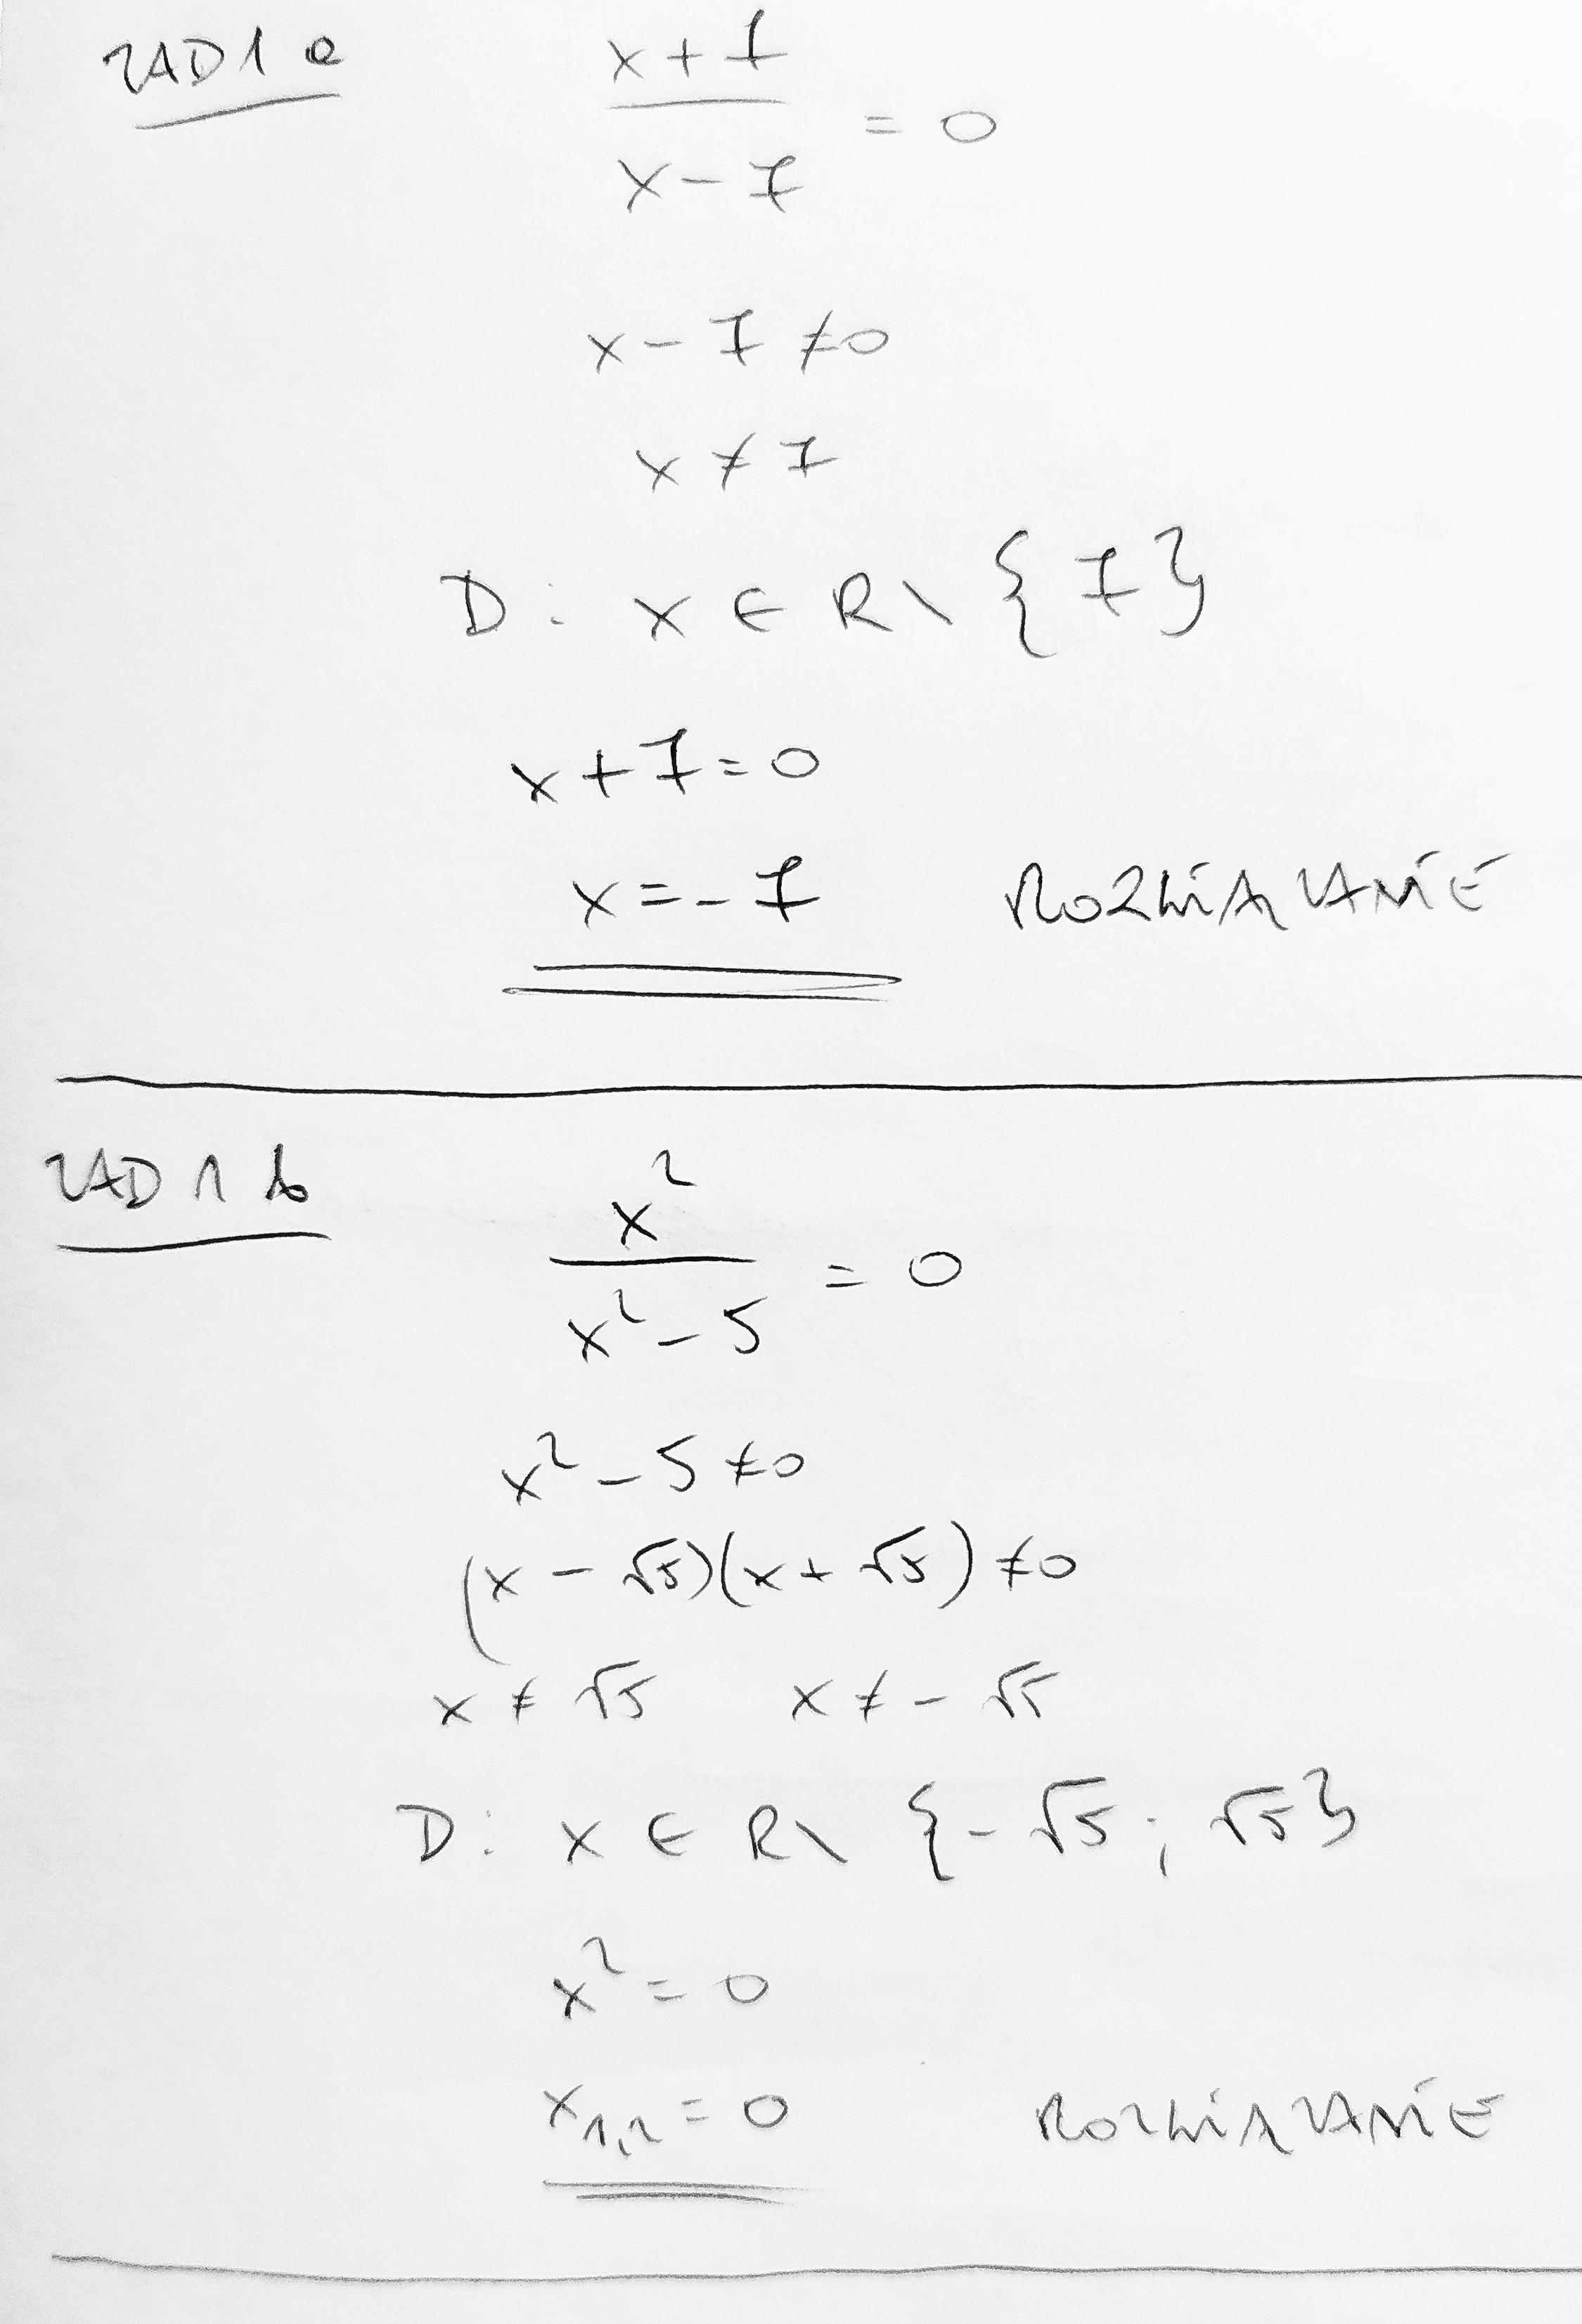 ZAD 1 a
x + 7
/ x - 7 = 0
x - 7 ≠ 0
x ≠ 7
D: x ∈ R \ {7}
x + 7 = 0
x = - 7 ROZWIĄZANIE
ZAD 1 b
x²
/ x² - 5 = 0
x² - 5 ≠ 0
(x - √5)(x + √5) ≠ 0
x ≠ √5 x ≠ - √5
D: x ∈ R \ {-√5; √5}
x² = 0
x₁,₂ = 0 ROZWIĄZANIE